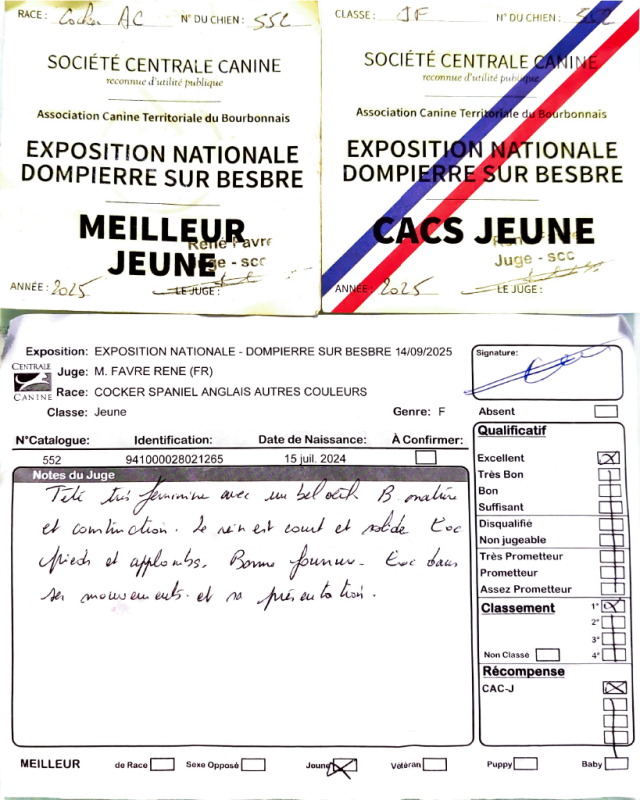 RACE : Cocker AC N° DU CHIEN : 552
SOCIÉTÉ CENTRALE CANINE
reconnue d'utilité publique
Association Canine Territoriale du Bourbonnais
EXPOSITION NATIONALE
DOMPIERRE SUR BESBRE
MEILLEUR
JEUNE
René Favre
Juge - scc
ANNÉE : 2025 LE JUGE :
CLASSE : JF N° DU CHIEN : 552
SOCIÉTÉ CENTRALE CANINE
reconnue d'utilité publique
Association Canine Territoriale du Bourbonnais
EXPOSITION NATIONALE
DOMPIERRE SUR BESBRE
CACS JEUNE
Juge - scc
ANNÉE : 2025 LE JUGE :
Exposition: EXPOSITION NATIONALE - DOMPIERRE SUR BESBRE 14/09/2025
CENTRALE
CANINE
Juge: M. FAVRE RENE (FR)
Race: COCKER SPANIEL ANGLAIS AUTRES COULEURS
Classe: Jeune Genre: F
N°Catalogue: Identification: Date de Naissance: À Confirmer:
552 941000028021265 15 juil. 2024
Notes du Juge
Tête très féminine avec un bel oeil. B. ossature
et construction. Le rein est court et solide Exc
pieds et applombs. Bonne fourrure. Exc dans
ses mouvements et sa présentation.
Signature:
Absent
Qualificatif
Excellent
Très Bon
Bon
Suffisant
Disqualifié
Non jugeable
Très Prometteur
Prometteur
Assez Prometteur
Classement 1°
2°
3°
Non Classé 4°
Récompense
CAC-J
MEILLEUR de Race Sexe Opposé Jeune Vétéran Puppy Baby